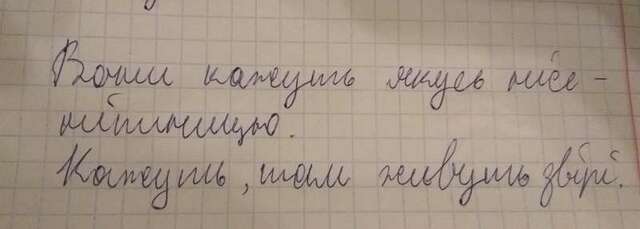 Вони кажуть якусь нісе-
нітницю.
Кажуть, там живуть звірі.